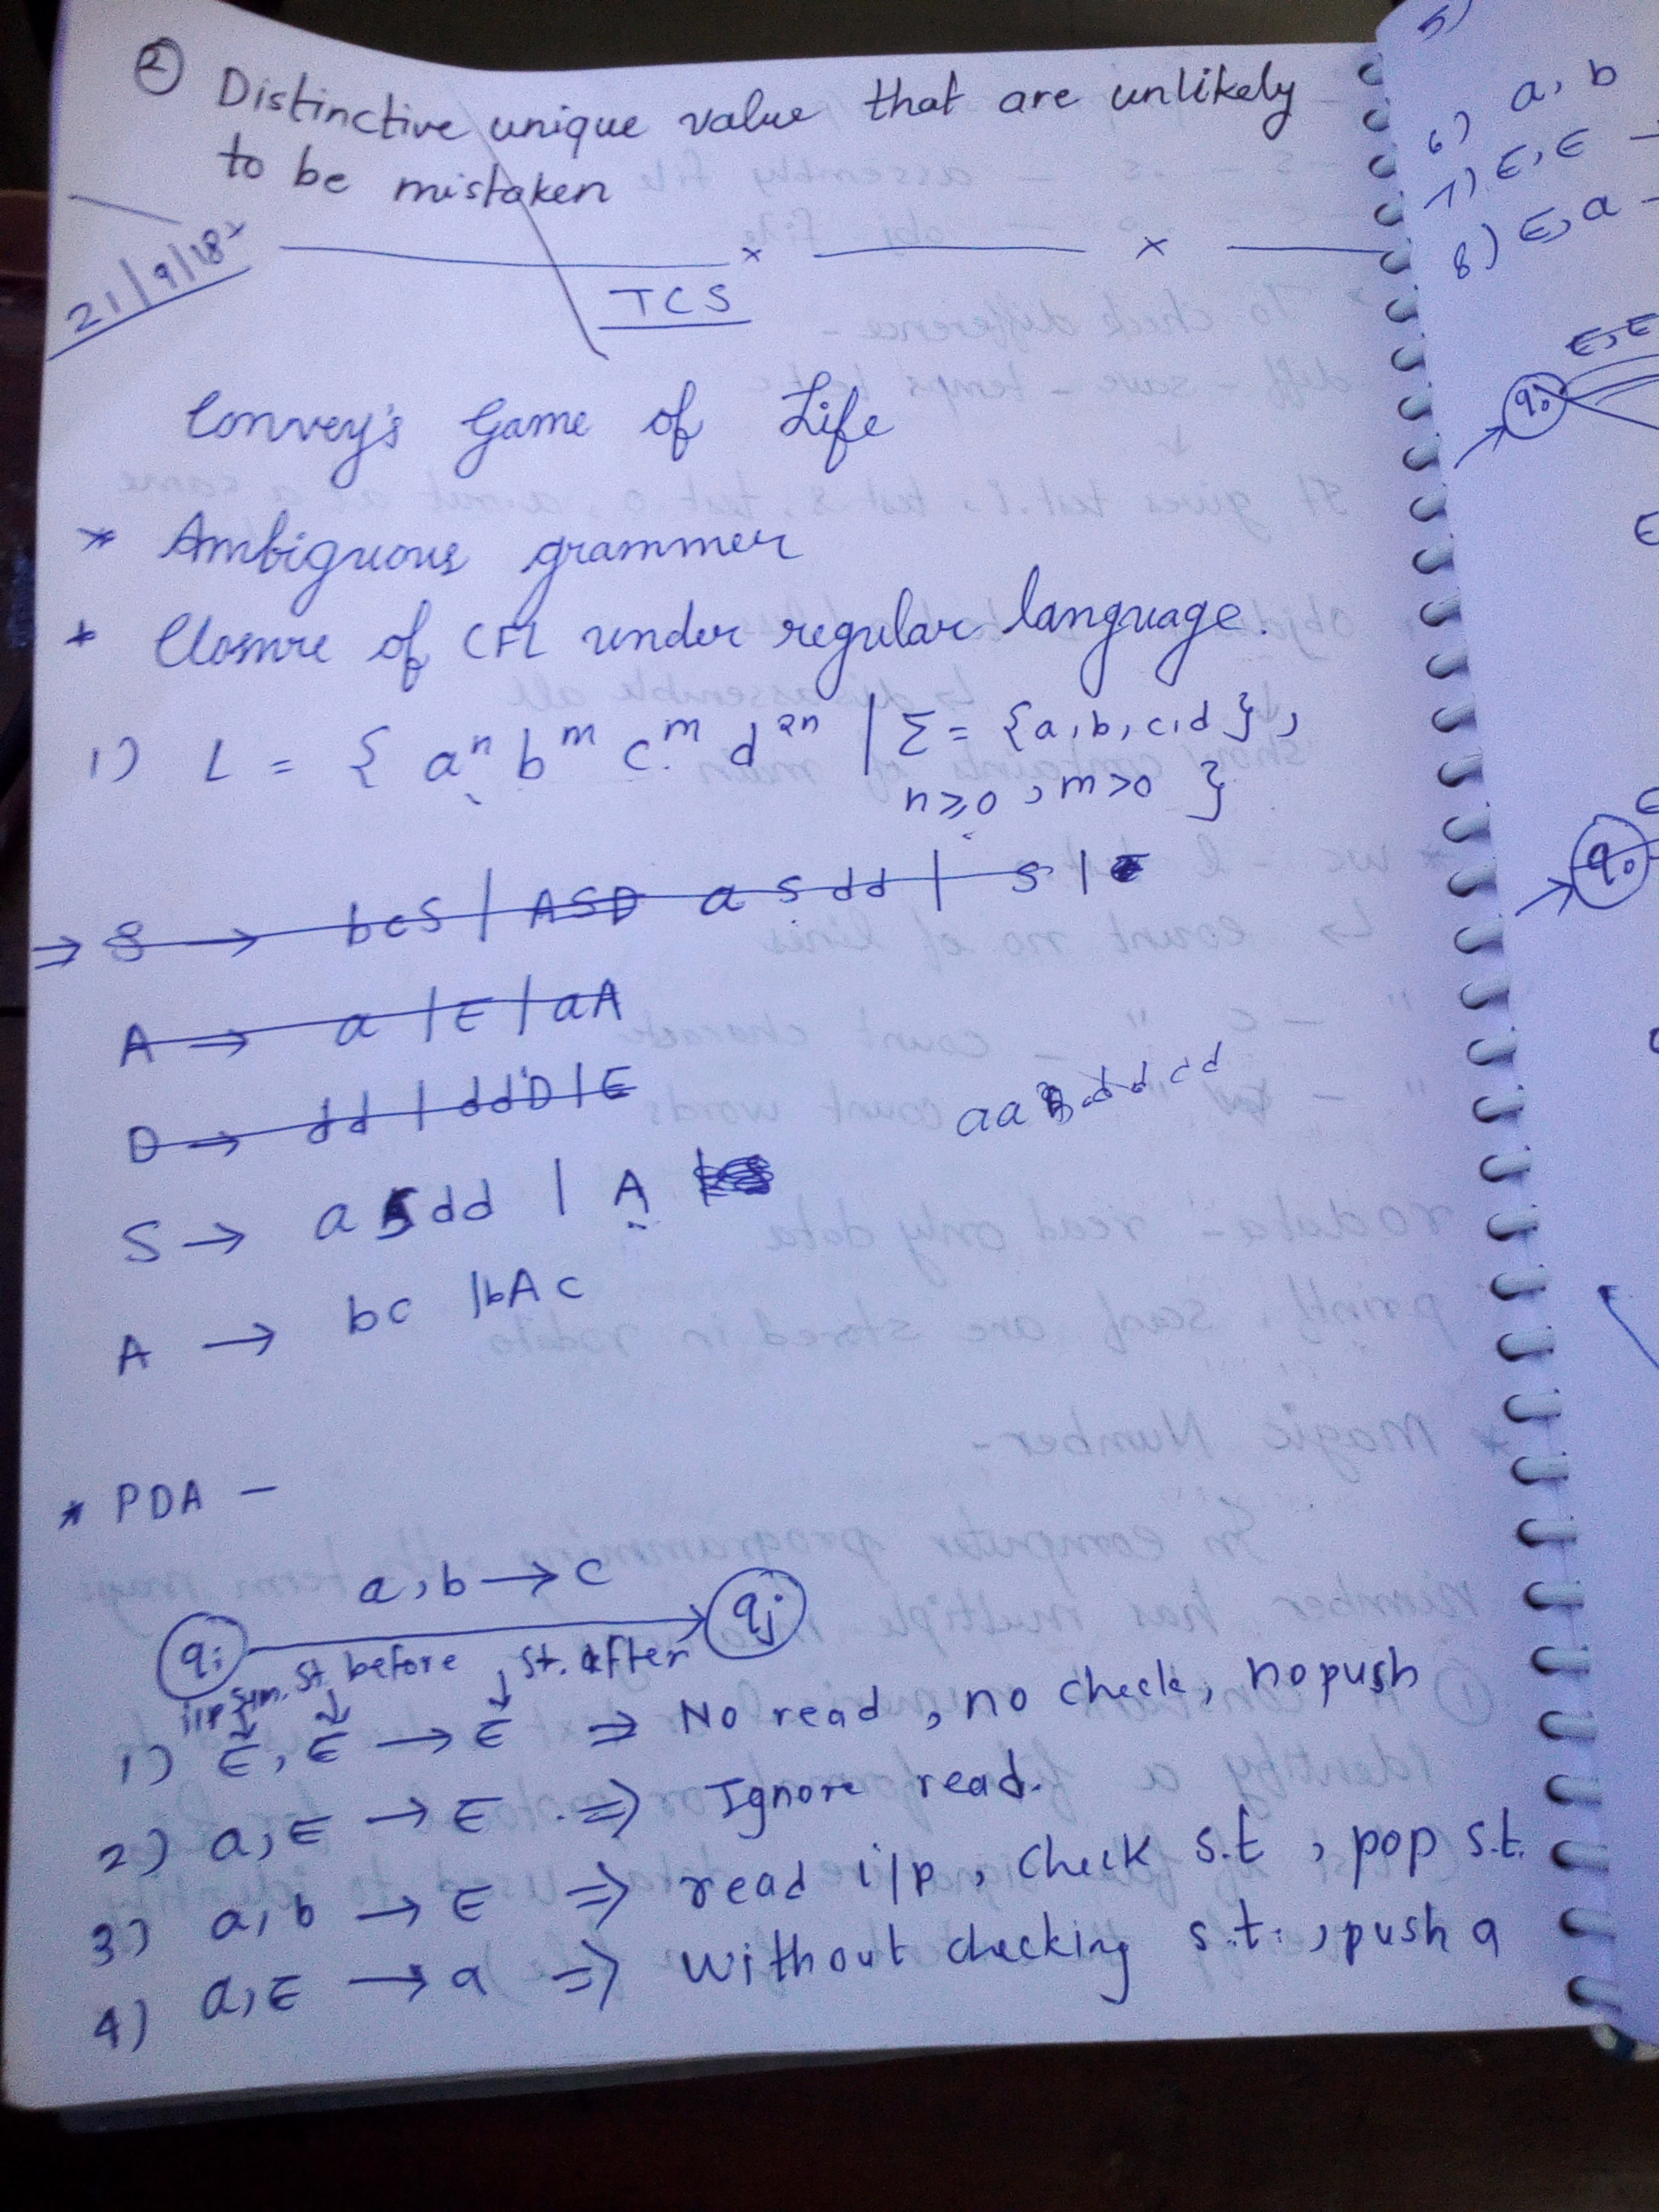 ② Distinctive unique value that are unlikely
to be mistaken
21/9/18
TCS
Convey's Game of Life
* Ambiguous grammer
* Closure of CFL under regular language.
1) L = { aⁿ bᵐ cᵐ d²ⁿ | Σ = {a,b,c,d},
n≥0, m>0 }
⇒ S → bcS | ASD a S dd | S | ϵ
A → a | ϵ | aA
D → dd | ddD | ϵ
S → a S dd | A
A → bc | bAc
* PDA -
a, b → c
qi qj
i/p sym. St. before St. after
1) ϵ, ϵ → ϵ ⇒ No read, no check, no push
2) a, ϵ → ϵ ⇒ Ignore read.
3) a, b → ϵ ⇒ read i/p, check s.t, pop s.t.
4) a, ϵ → a ⇒ without checking s.t., push a
5)
6) a, b
7) ϵ, ϵ →
8) ϵ, a -
ϵ, ϵ
q0
q0